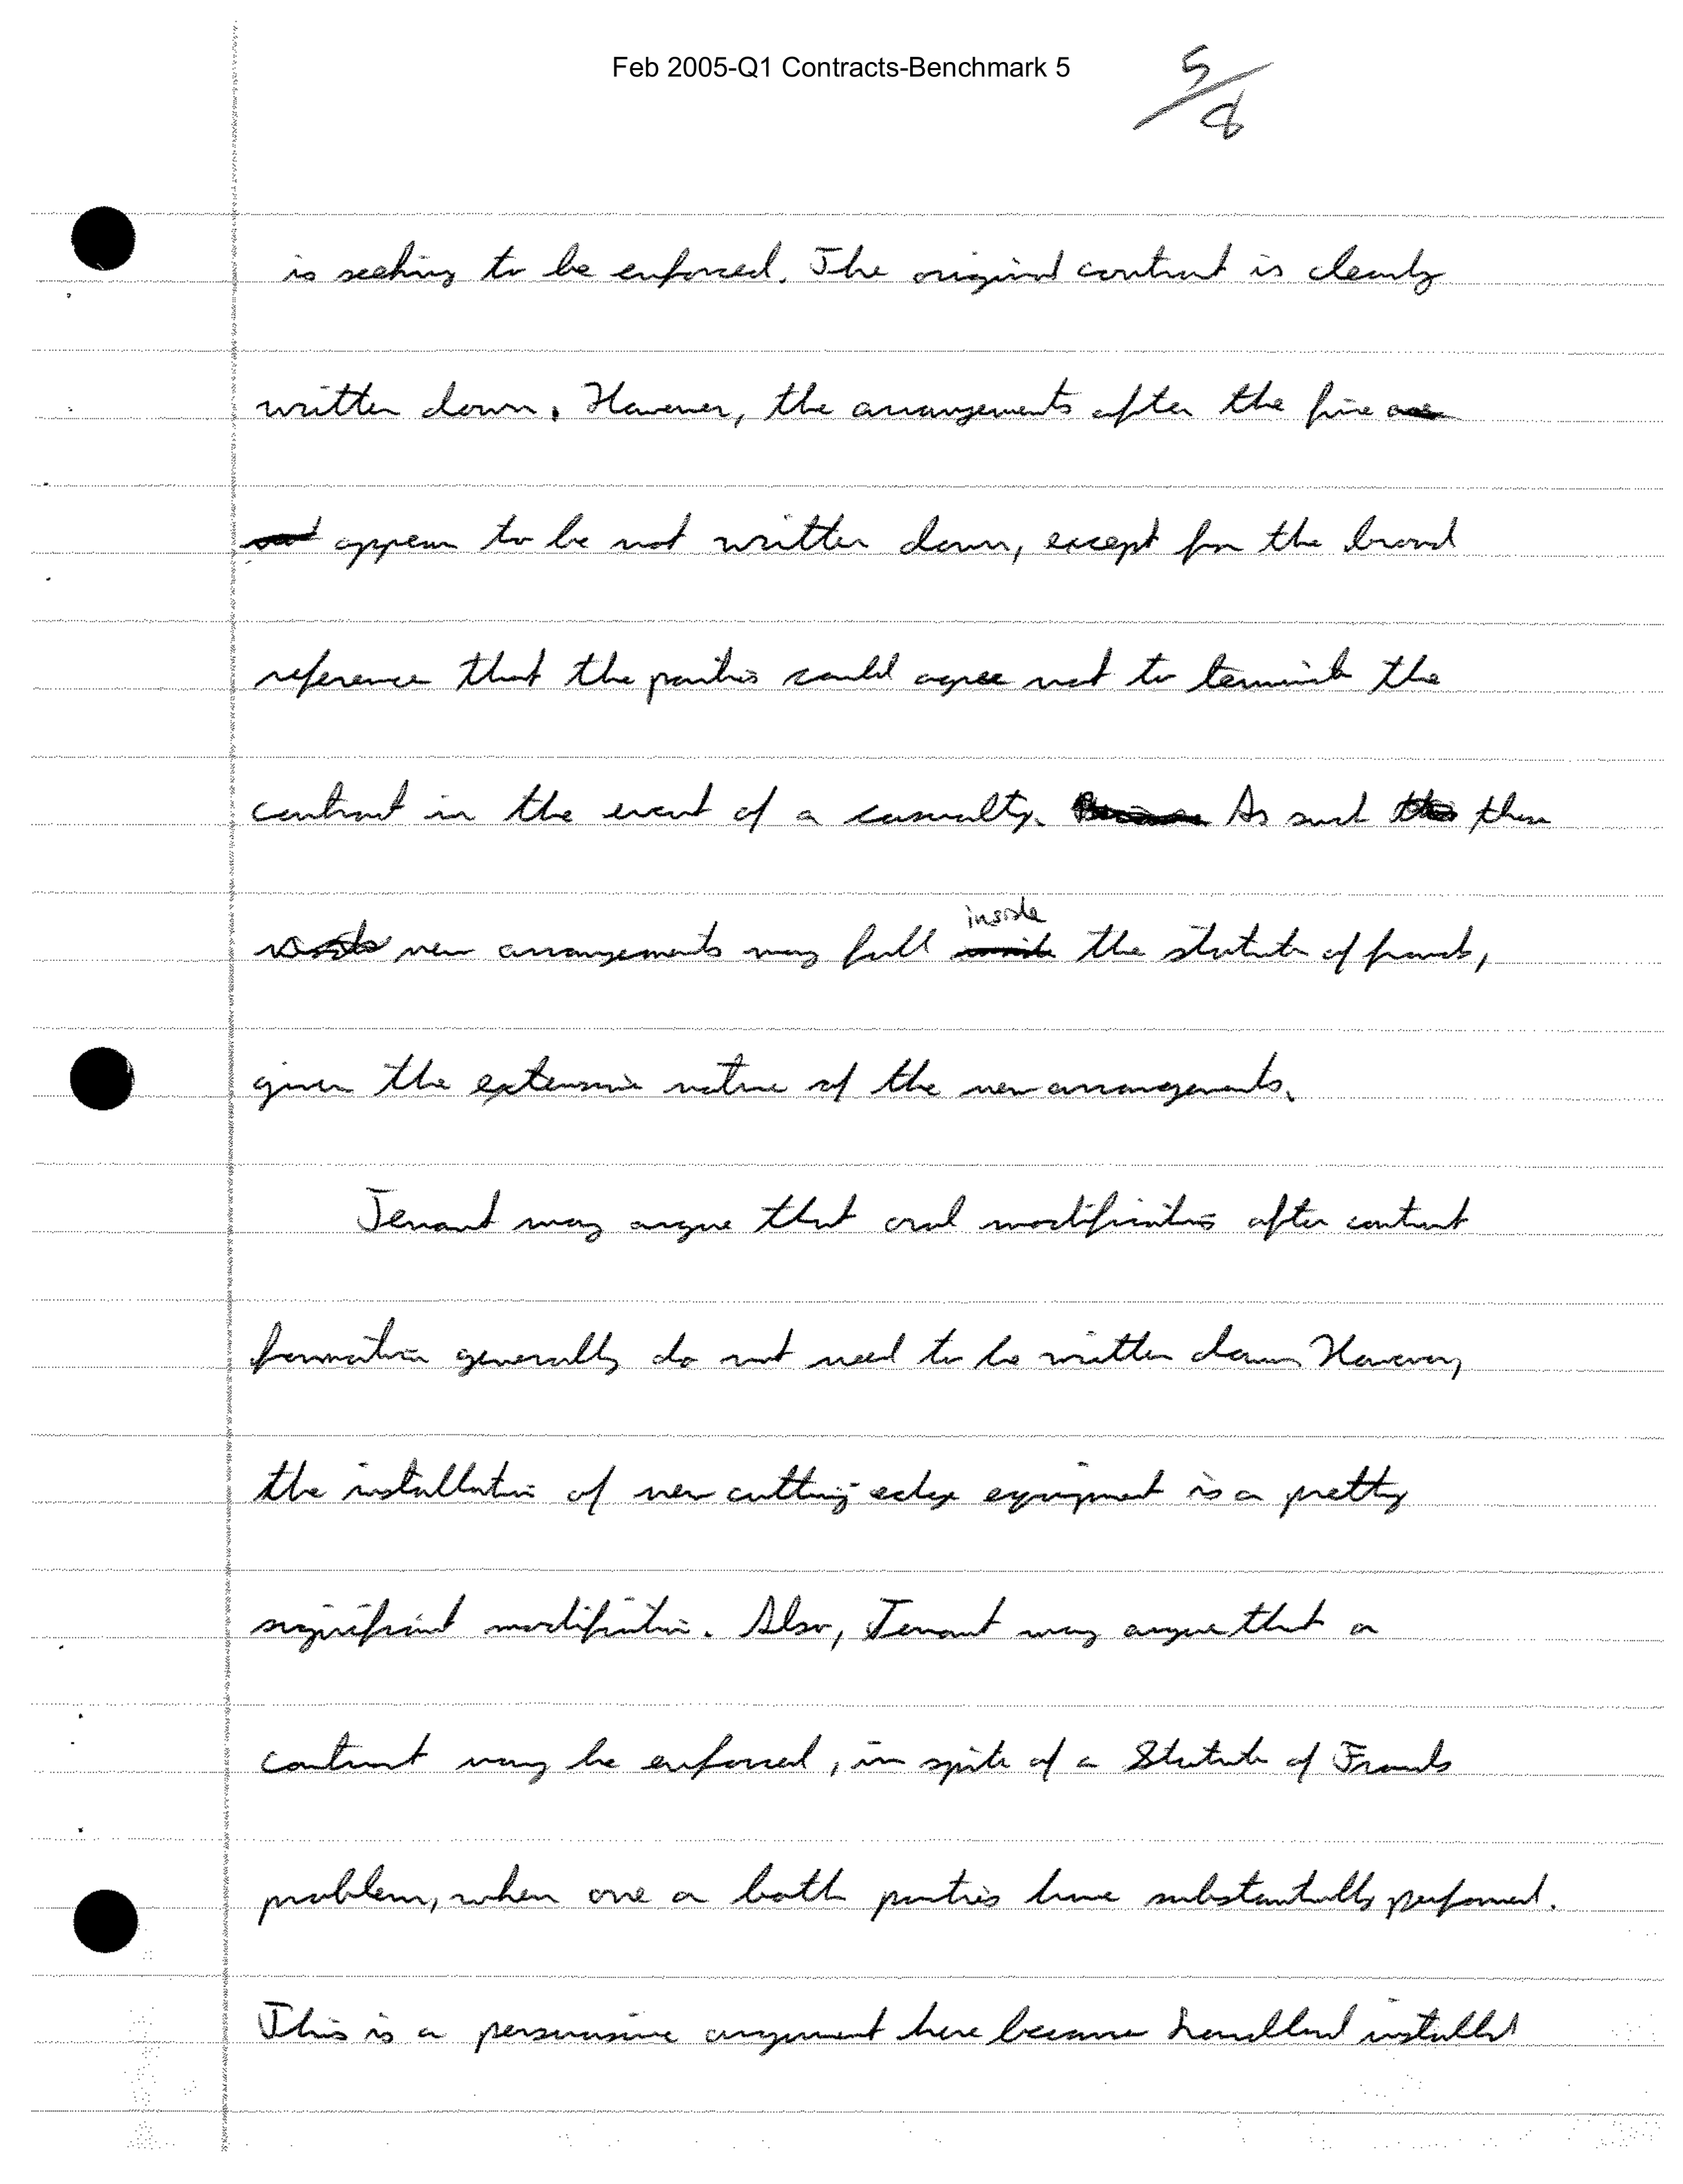 Feb 2005-Q1 Contracts-Benchmark 5
5/8
is seeking to be enforced. The original contract is clearly
written down. However, the arrangements after the fire
appear to be not written down, except for the broad
reference that the parties could agree not to terminate the
contract in the event of a casualty. As such these
inside
new arrangements may fall the statute of frauds,
given the extensive nature of the new arrangements.
Tenant may argue that oral modifications after contract
formation generally do not need to be written down. However,
the installation of new cutting edge equipment is a pretty
significant modification. Also, Tenant may argue that a
contract may be enforced, in spite of a Statute of Frauds
problem, when one or both parties have substantially performed.
This is a persuasive argument here because Landlord installed